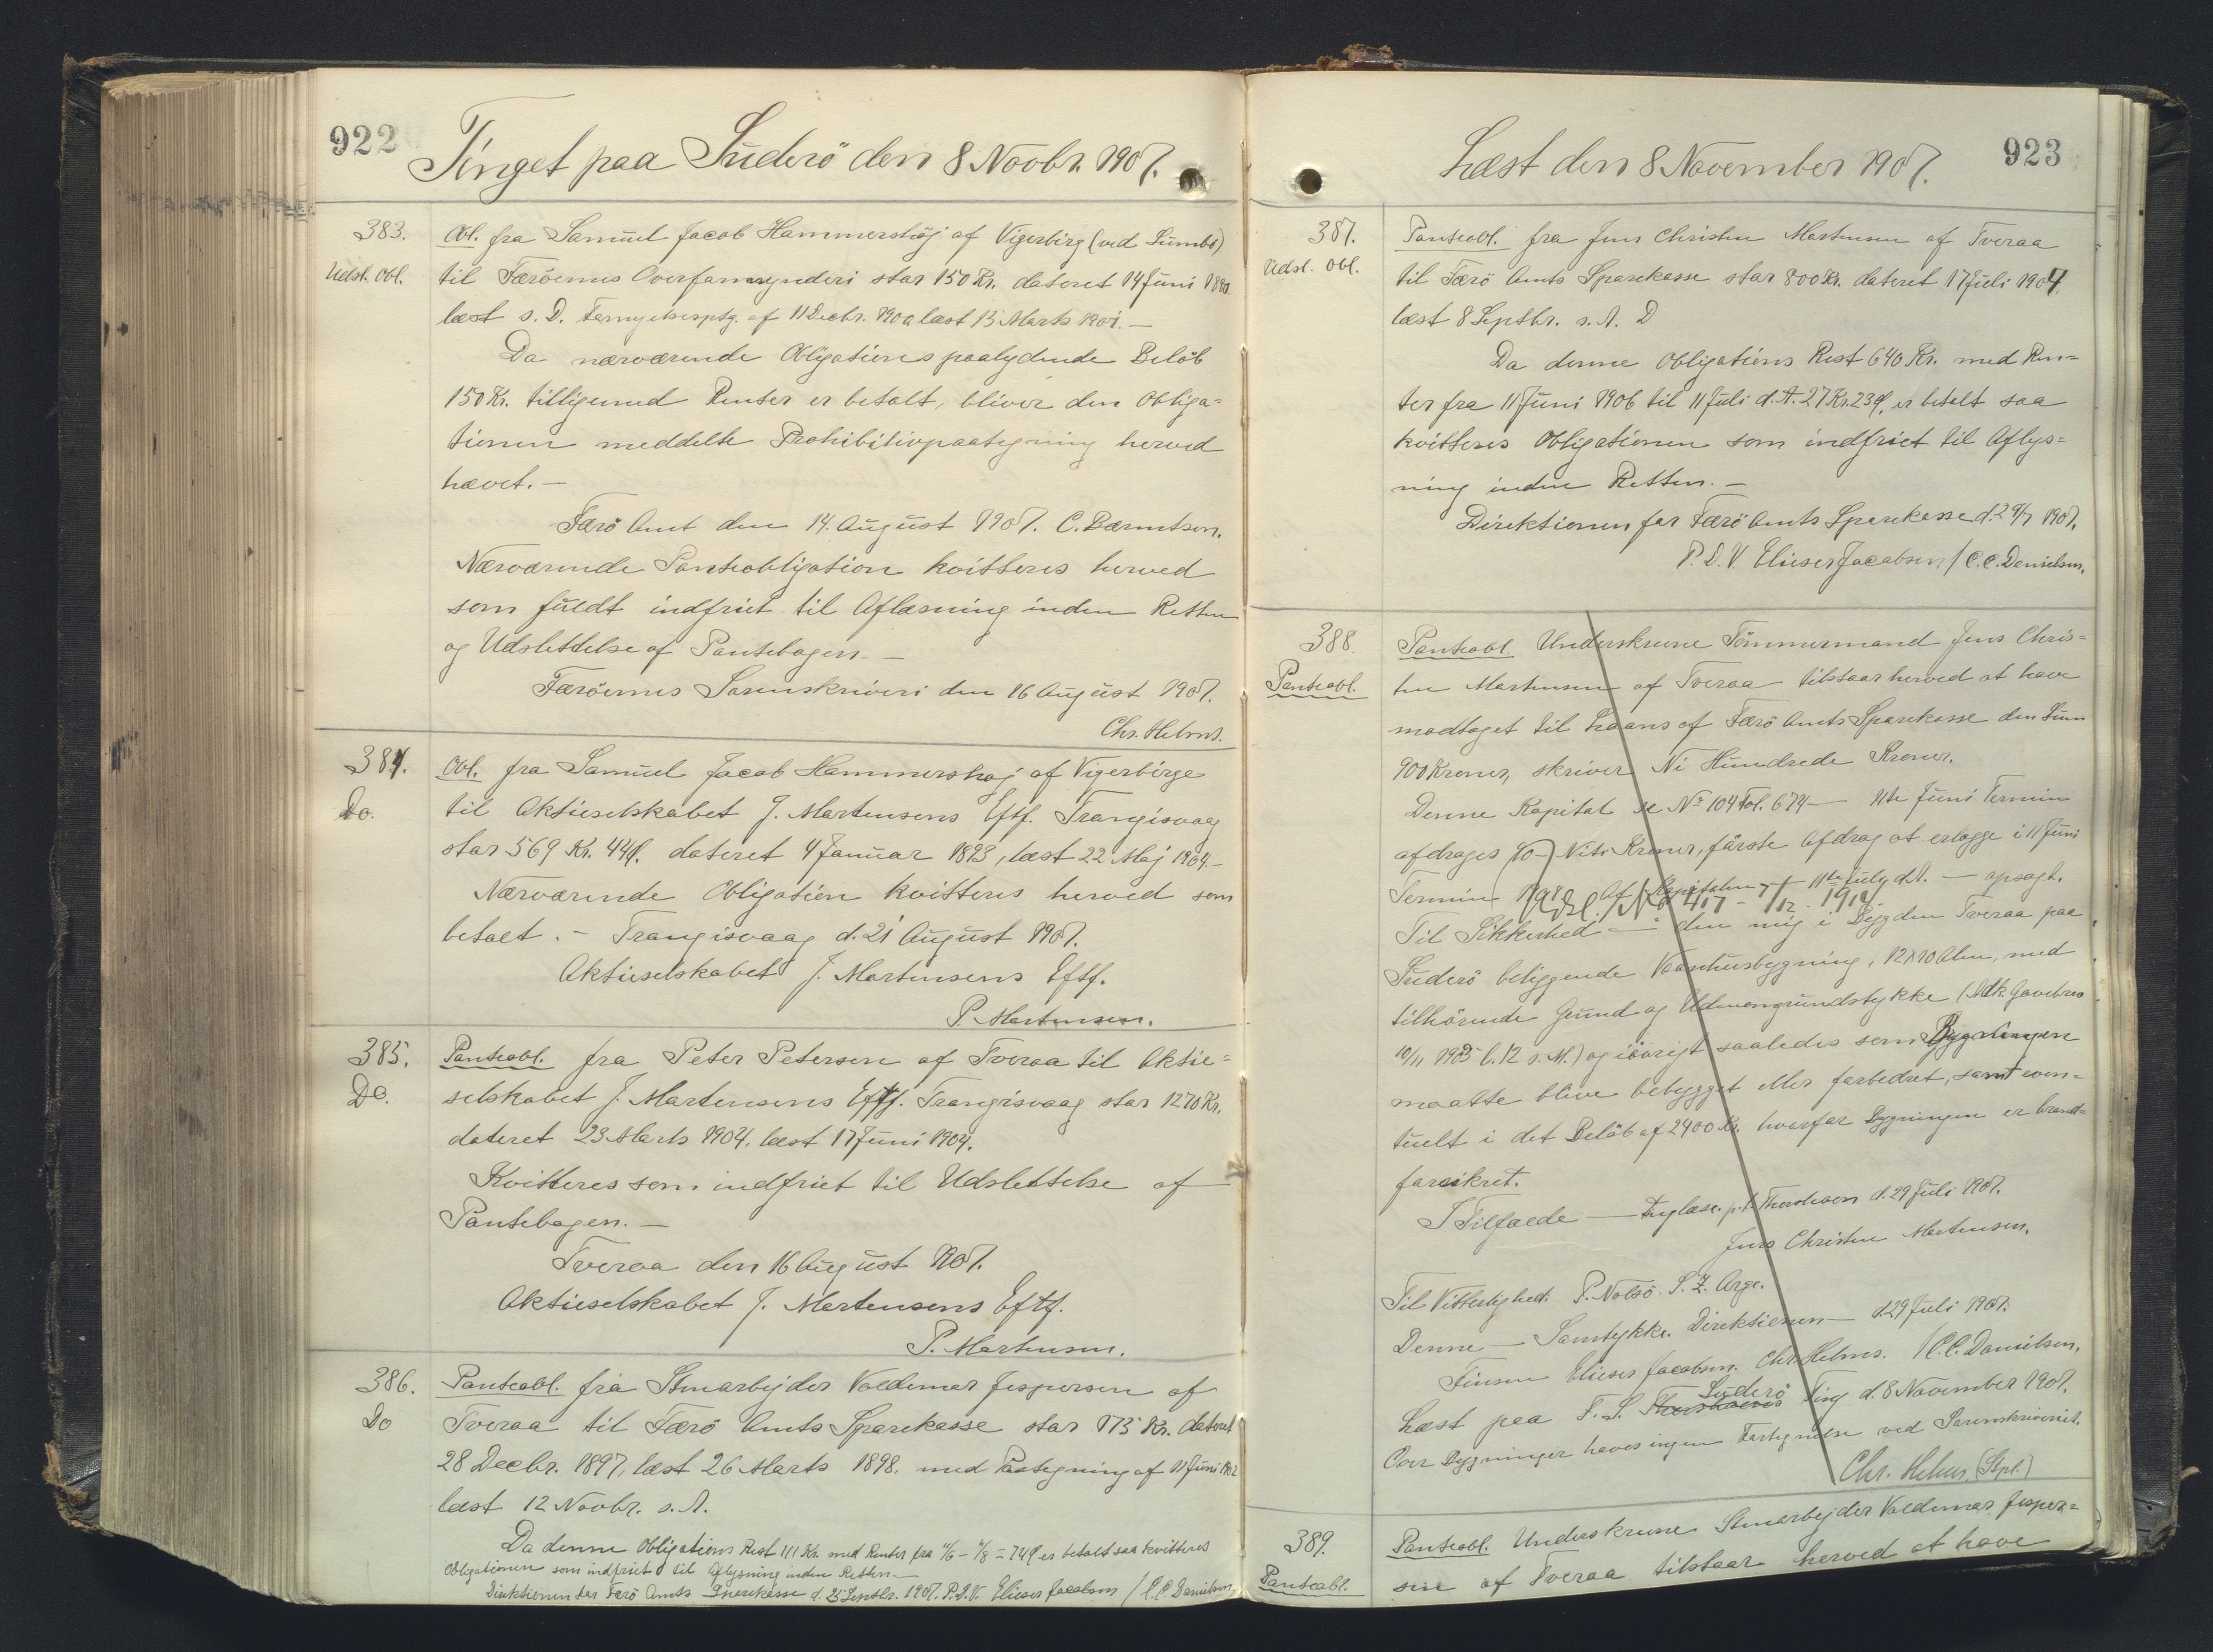 922
Tinget paa Suderö den 8 Novbr. 1907.
383.
Udsl. Obl.
Obl. fra Samuel Jacob Hammershöj af Vigerbirg (ved Sumbö)
til Færöernes Overformynderi stor 150 Kr. dateret 14 Juni 1880.
læst s. D. Fornyelsesptg. af 11 Decbr. 1900 læst 13 Marts 1901. —
Da nærværende Obligations paalydende Belöb
150 Kr. tilligemed Renter er betalt, bliver den Obliga=
tionen meddelte Prohibitivpaategning herved
hævet. —
Færö Amt den 14. August 1907. C. Bærentsen.
Nærværende Panteobligation kvitteres herved
som fuldt indfriet til Aflæsning inden Retten
og Udslettelse af Pantebogen. —
Færöernes Sorenskriveri den 16 August 1907.
Chr. Helms.
384.
Do.
Obl. fra Samuel Jacob Hammershøj af Vigerbirge
til Aktieselskabet J. Mortensens Eftf. Trangisvaag
stor 569 Kr. 44 Ø. dateret 4 Januar 1893, læst 22 Maj 1904. —
Nærværende Obligation kvitteres herved som
betalt. — Trangisvaag d. 21 August 1907.
Aktieselskabet J. Mortensens Eftf.
P. Mortensen.
385.
Do.
Panteobl. fra Peter Petersen af Tveraa til Aktie=
selskabet J. Mortensens Eftf. Trangisvaag stor 1270 Kr.
dateret 23 Marts 1904, læst 17 Juni 1904.
Kvitteres som indfriet til Udslettelse af
Pantebogen. —
Tveraa den 16 August 1907.
Aktieselskabet J. Mortensens Eftf.
P. Mortensen.
386.
Do
Panteobl. fra Stenarbejder Valdemar Jespersen af
Tveraa til Færö Amts Sparekasse stor 175 Kr. dateret
28 Decbr. 1897, læst 26 Marts 1898. med Paategning af 11 Juni 1902
læst 12 Novbr. s. A.
Da denne Obligations Rest 111 Kr. med Renter fra 11/6 - 11/8 = 74 Ø er betalt saa kvitteres
Obligationen som indfriet til Aflysning inden Retten. —
Direktionen for Færö Amts Sparekasse d. 25 Septbr. 1907. P.D.V. Elieser Jacobsen / C.C. Danielsen.
Læst den 8 November 1907.
923
387.
Udsl. Obl.
Panteobl. fra Jens Christen Mortensen af Tveraa
til Færö Amts Sparekasse stor 800 Kr. dateret 17 Juli 1904,
læst 8 Septbr. s. A. D
Da denne Obligations Rest 640 Kr. med Ren=
ter fra 11 Juni 1906 til 11 Juli d. A. 27 Kr. 23 Ø, er betalt saa
kvitteres Obligationen som indfriet til Aflys=
ning inden Retten. —
Direktionen for Færö Amts Sparekasse d. 29/7 1907.
P.D.V. Elieser Jacobsen / C.C. Danielsen.
388.
Panteobl.
Panteobl. Underskrevne Tömmermand Jens Chris=
ten Mortensen af Tveraa tilstaar herved at have
modtaget til Laans af Færö Amts Sparekasse den Sum
900 Kroner, skriver Ni Hundrede Kroner.
Denne Kapital se No 104 Fol. 674 — 11te Juni Termin
afdrages Kroner, förste Afdrag at erlægge i 11 Juni
Termin 1908. Af Kapitalen — 11te July d. A. — opsagt.
Udsl. No 417 - 1/12 - 1914
Til Sikkerhed — den mig i Bygden Tveraa paa
Suderö beliggende Vaanhusbygning, 12x10 Alen, med
tilhörende Grund og Udmarksgrundstykke (Mdk. Gavebrev
10/11 1905 l. 12 s. M.) og iövrigt saaledes som Bygningen
maatte blive bebygget eller forbedret, samt even=
tuelt i det Belöb af 2400 Kr. hvorfor Bygningen er brand=
forsikret.
I Tilfælde — Tinglæse. p.t. Thorshavn d. 29 Juli 1907.
Jens Christen Mortensen.
Til Vitterlighed: P. Nolsö. S. Z. Arge.
Denne — Samtykke. Direktionen — d. 29 Juli 1907.
Finsen Elieser Jacobsen. Chr. Helms. / C.C. Danielsen.
Læst paa F. S. Thorshavns Suderö Ting d. 8 November 1907.
Over Bygninger haves ingen Fortegnelse ved Sorenskriveriet.
Chr. Helms. (Stpl.)
389.
Panteobl.
Panteobl. Underskrevne Stenarbejder Valdemar Jesper=
sen af Tveraa tilstaar herved at have